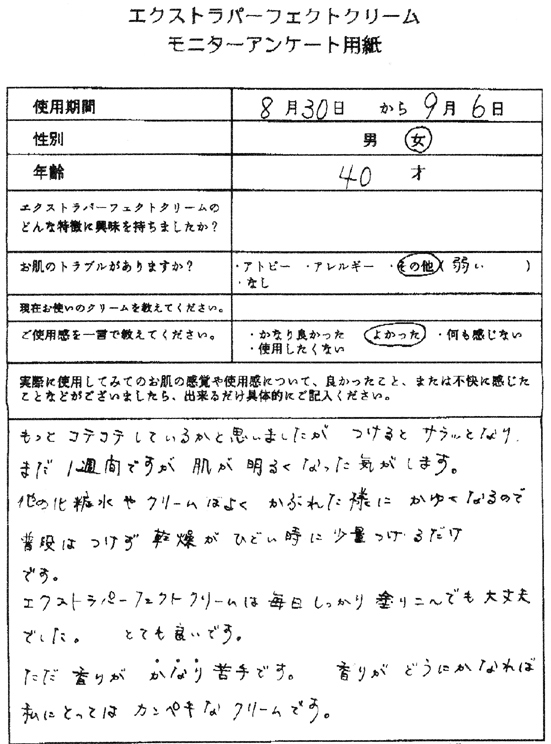 エクストラパーフェクトクリーム
モニターアンケート用紙
使用期間 8月30日 から 9月6日
性別 男 女
年齢 40 才
エクストラパーフェクトクリームの
どんな特徴に興味を持ちましたか？
お肌のトラブルがありますか？ ・アトピー ・アレルギー ・その他(弱い )
・なし
現在お使いのクリームを教えてください。
ご使用感を一言で教えてください。 ・かなり良かった よかった ・何も感じない
・使用したくない
実際に使用してみてのお肌の感覚や使用感について、良かったこと、または不快に感じた
ことなどがございましたら、出来るだけ具体的にご記入ください。
もっと コテコテしているかと思いましたが つけると サラッとなり、
まだ 1週間ですが 肌が 明るくなった 気がします。
他の化粧水や クリームはよく かぶれた様に かゆくなるので
普段は つけず 乾燥が ひどい時に 少量つけるだけ
です。
エクストラパーフェクトクリームは 毎日しっかり 塗りこんでも大丈夫
でした。 とても良いです。
ただ 香りが かなり 苦手です。 香りが どうにかなれば
私にとっては カンペキな クリームです。